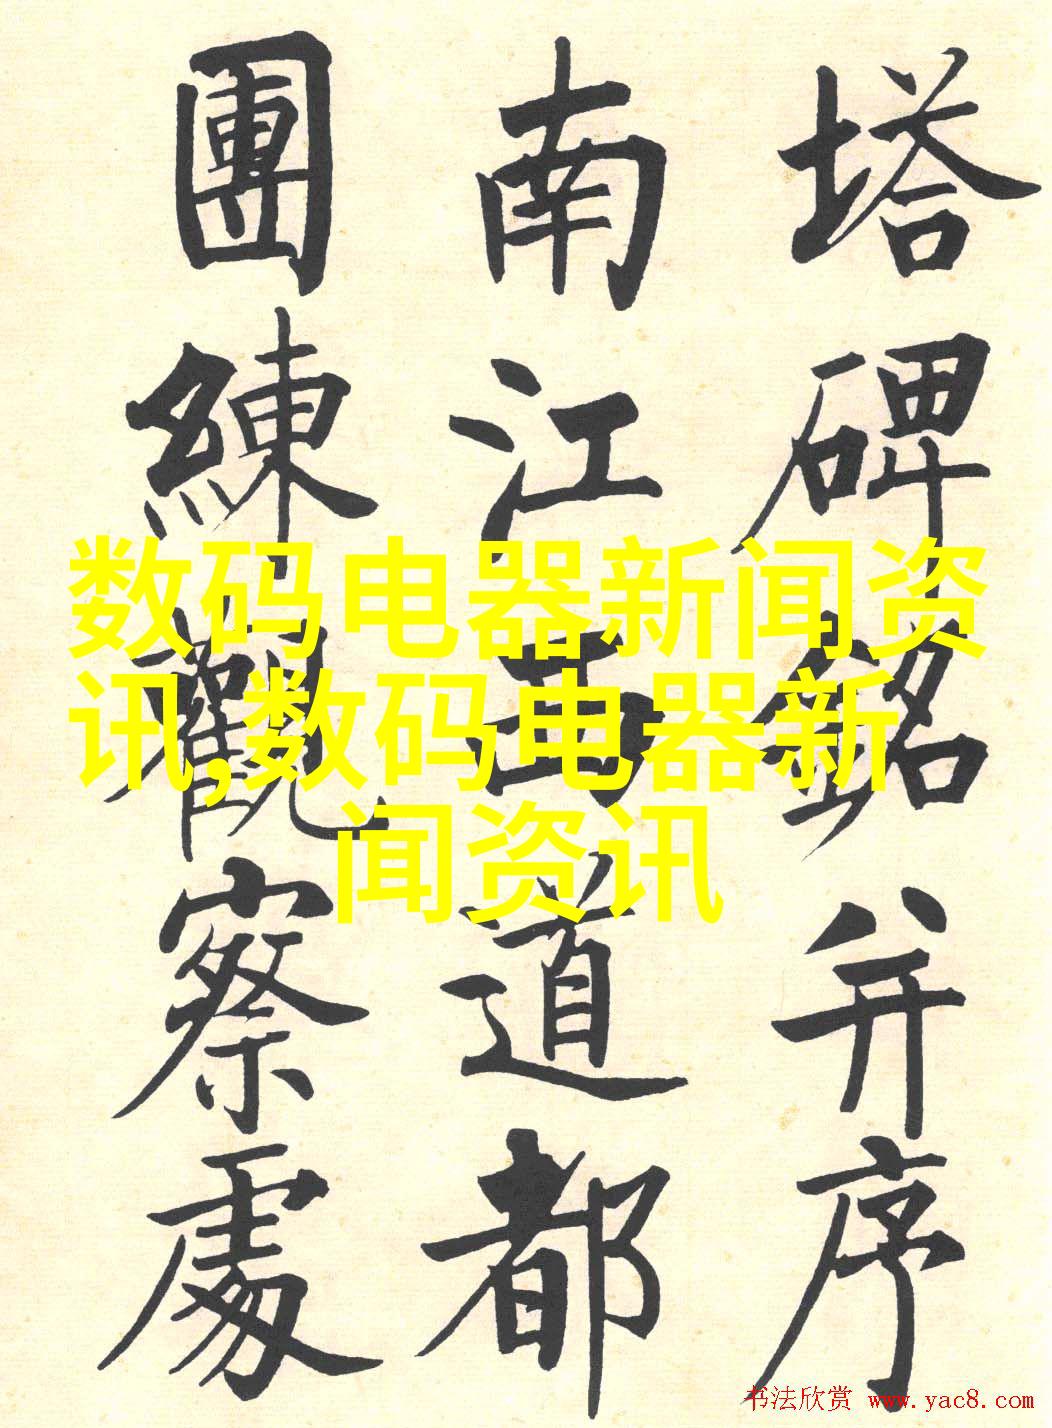 塔碑銘并序
南江西道都
團練觀察處
数码电器新闻资
讯,数码电器新
闻资讯
书法欣赏 www.yac8.com